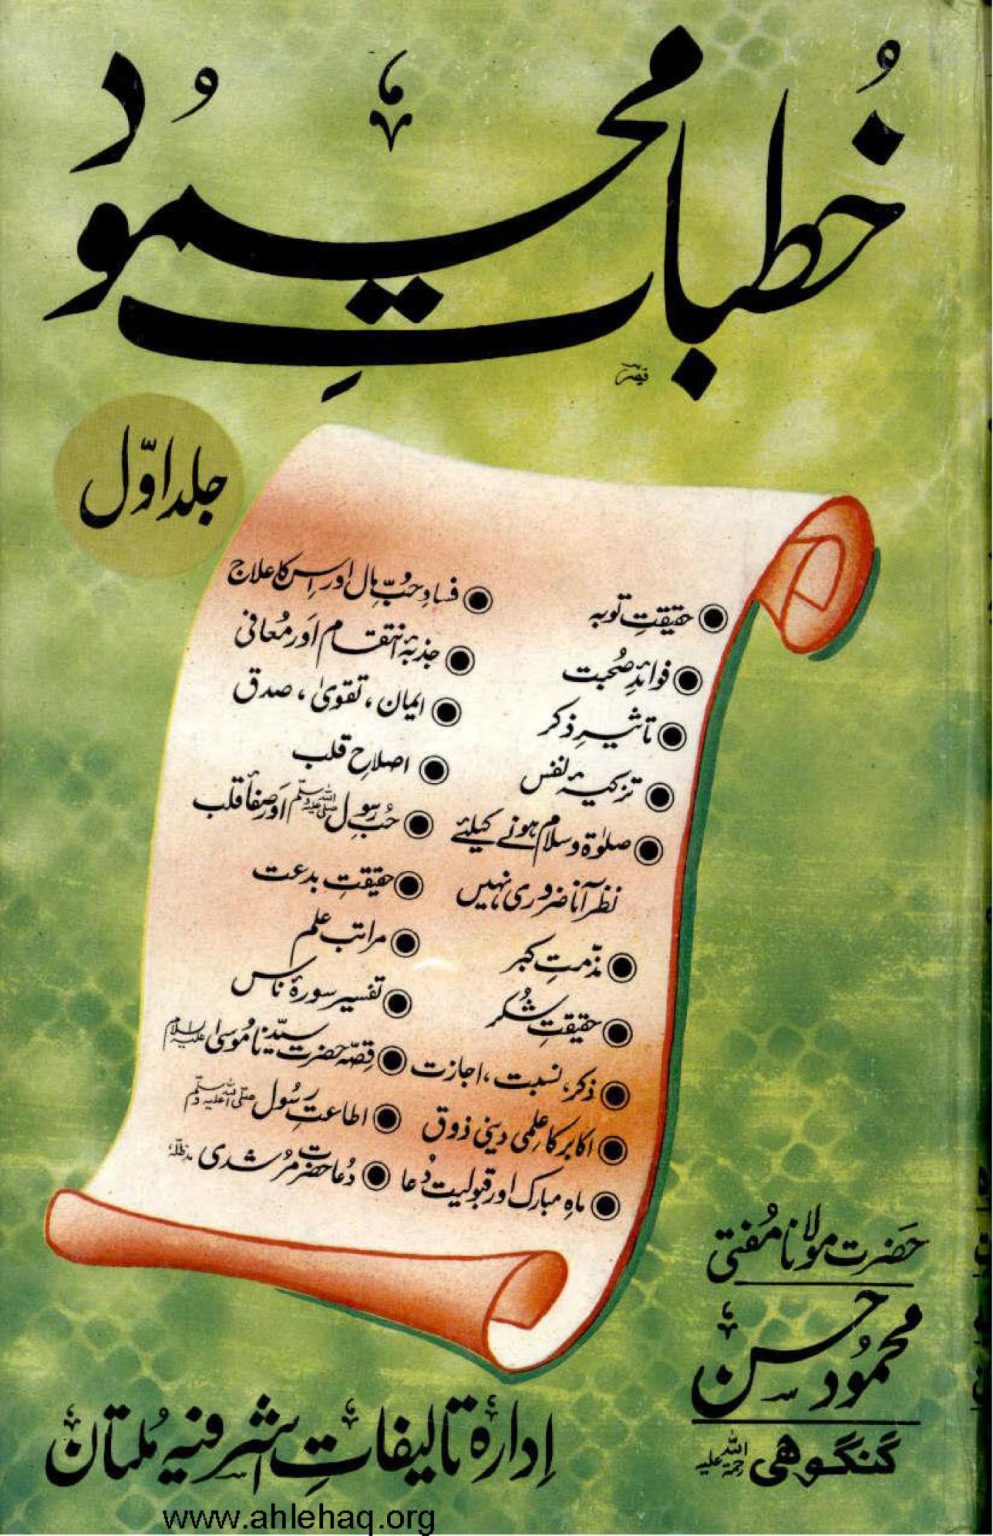 خُطباتِ محمُود
قیصر
جلد اوّل
حقیقتِ توبہ
فوائدِ صُحبت
تاثیرِ ذکر
تزکیۂ نفس
صلوٰۃ و سلام ہونے کیلئے
نظر آنا ضروری نہیں
مذّمتِ کبر
حقیقتِ شُکر
ذکر، نسبت، اجازت
اکابر کا عِلمی دینی ذوق
ماہِ مبارک اور قبولیت دُعا
فسادِ حُبِّ مال اور اس کا علاج
جذبۂ انتقام اور مُعافی
ایمان، تقویٰ، صدق
اصلاحِ قلب
حُبِّ رسُول صلی اللہ علیہ وسلم اور صفأ قلب
حقیقتِ بدعت
مراتبِ علم
تفسیر سورۂ ناس
قِصّہ حضرت سیّدنا مُوسیٰ علیہ السلام
اطاعتِ رسُول صلی اللہ علیہ وسلم
دُعا حضرت مُرشدی مدظلہٗ
حَضرت مولانا مُفتی
محمُود حسن
گنگوهی رحمۃ اللہ علیہ
ادارۂ تالیفاتِ اشرفیہ مُلتان
www.ahlehaq.org